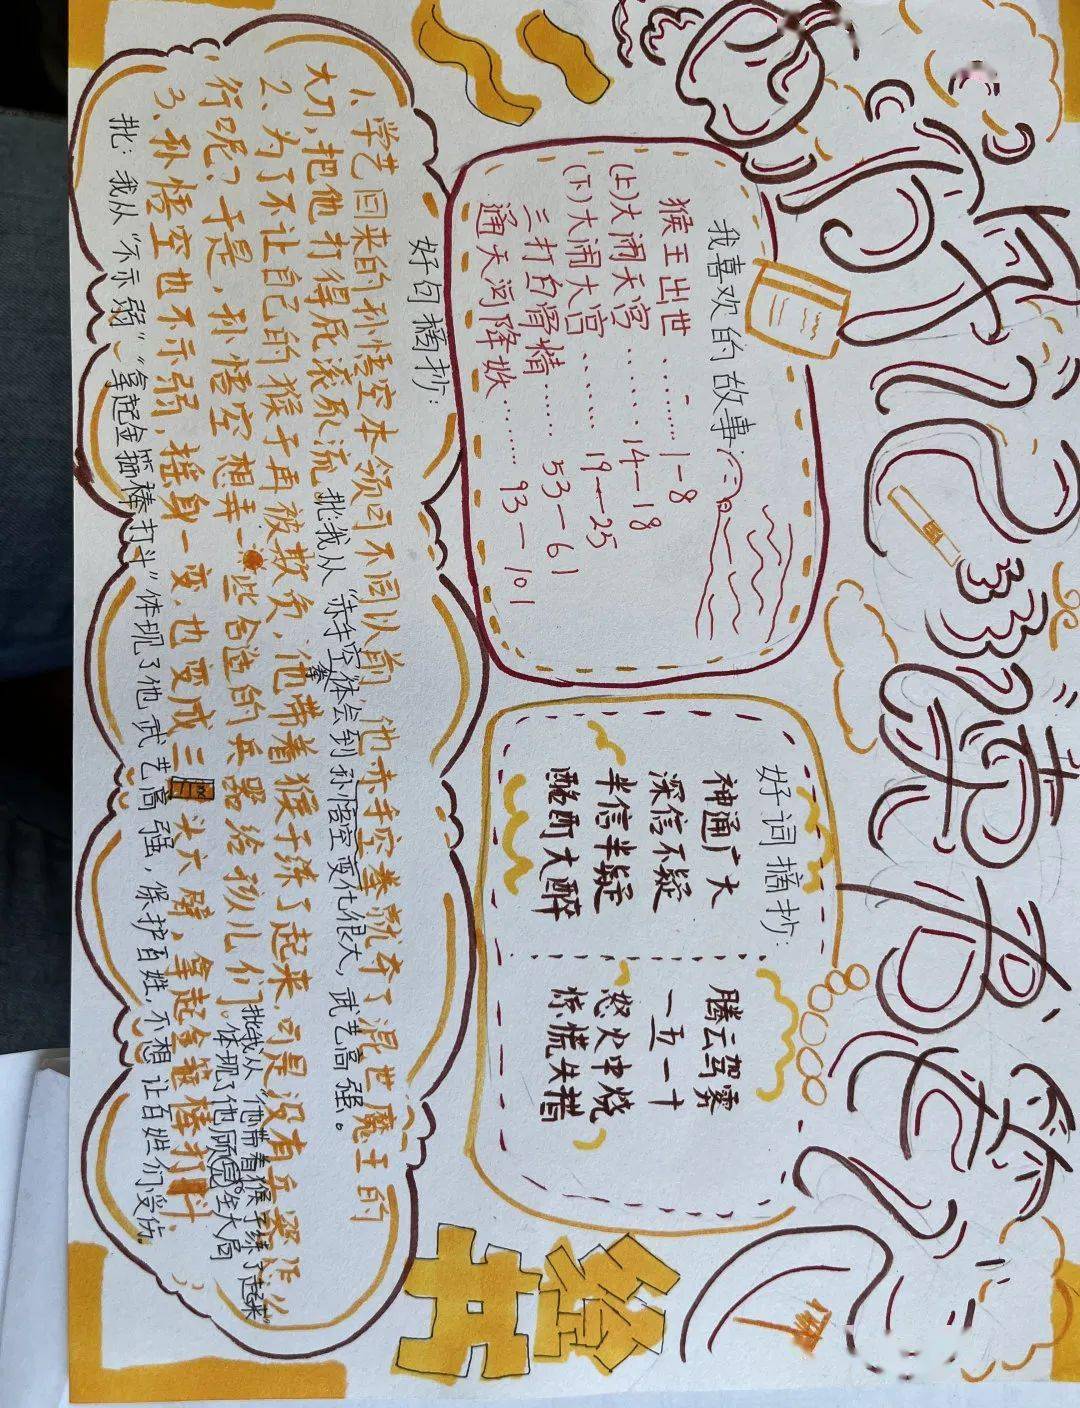 西游记读书
我喜欢的故事:
猴王出世……1-8
(上)大闹天宫……14-18
(下)大闹天宫……19-25
三打白骨精……53-61
通天河降妖……93-101
好词摘抄:
神通广大 腾云驾雾
深信不疑 一五一十
半信半疑 怒火中烧
酩酊大醉 惊慌失措
经
好句摘抄:
1、学艺回来的孙悟空本领可不同以前,他赤手空拳就夺了混世魔王的
大刀,把他打得屁滚尿流 批:我从"赤手空拳"体会到孙悟空变化很大,武艺高强。
2、为了不让自己的猴子再被欺负,他带着猴子练了起来,可是没有兵器怎
行呢?于是,孙悟空想弄一些合适的兵器给孩儿们。批:我从"他带着猴子练了起来"
体现了他顾全大局
3、孙悟空也不示弱,摇身一变,也变成三头六臂,拿起金箍棒打斗,
批:我从"不示弱""拿起金箍棒打斗"体现了他武艺高强,保护百姓,不想让百姓们受伤。